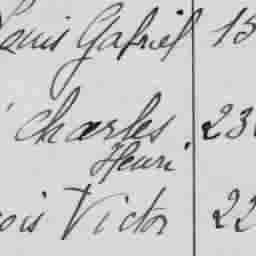 Louis Gabriel 15
Charles 23
Henri
ois Victor 22